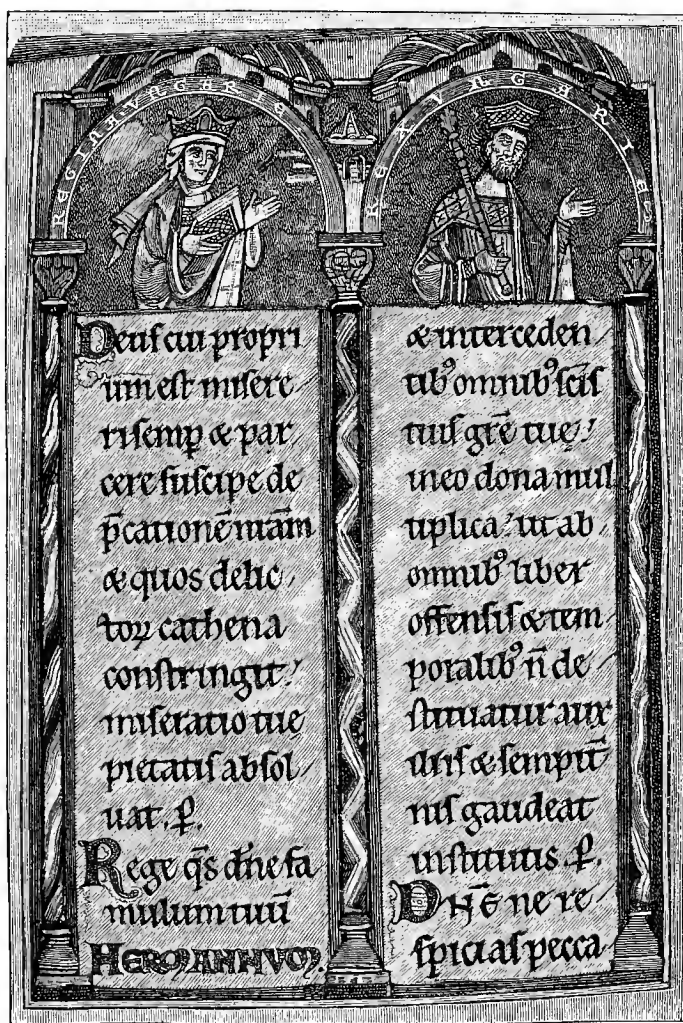 REGINA VNGARIE
REX VNGARIES
Deus cui propri
um est misere
ri semp̄ & par
cere suscipe de
p̄cationē nr̄am
& quos delic
toꝝ cathena
constringit:
miseratio tue
pietatis absol
uat. ꝑ.
Rege q̄s dn̄e fa
mulum tuū
HERMANNVM.
& interceden
tib; omnib; sc̄is
tuis grē̄ tuę:
in eo dona mul
tiplica: ut ab
omnib; liber
offensis & tem
poralib; n̄ de
stituatur aux
iliis & sempit̄
nis gaudeat
institutis. ꝑ.
DN̄E ne re
spicias pecca